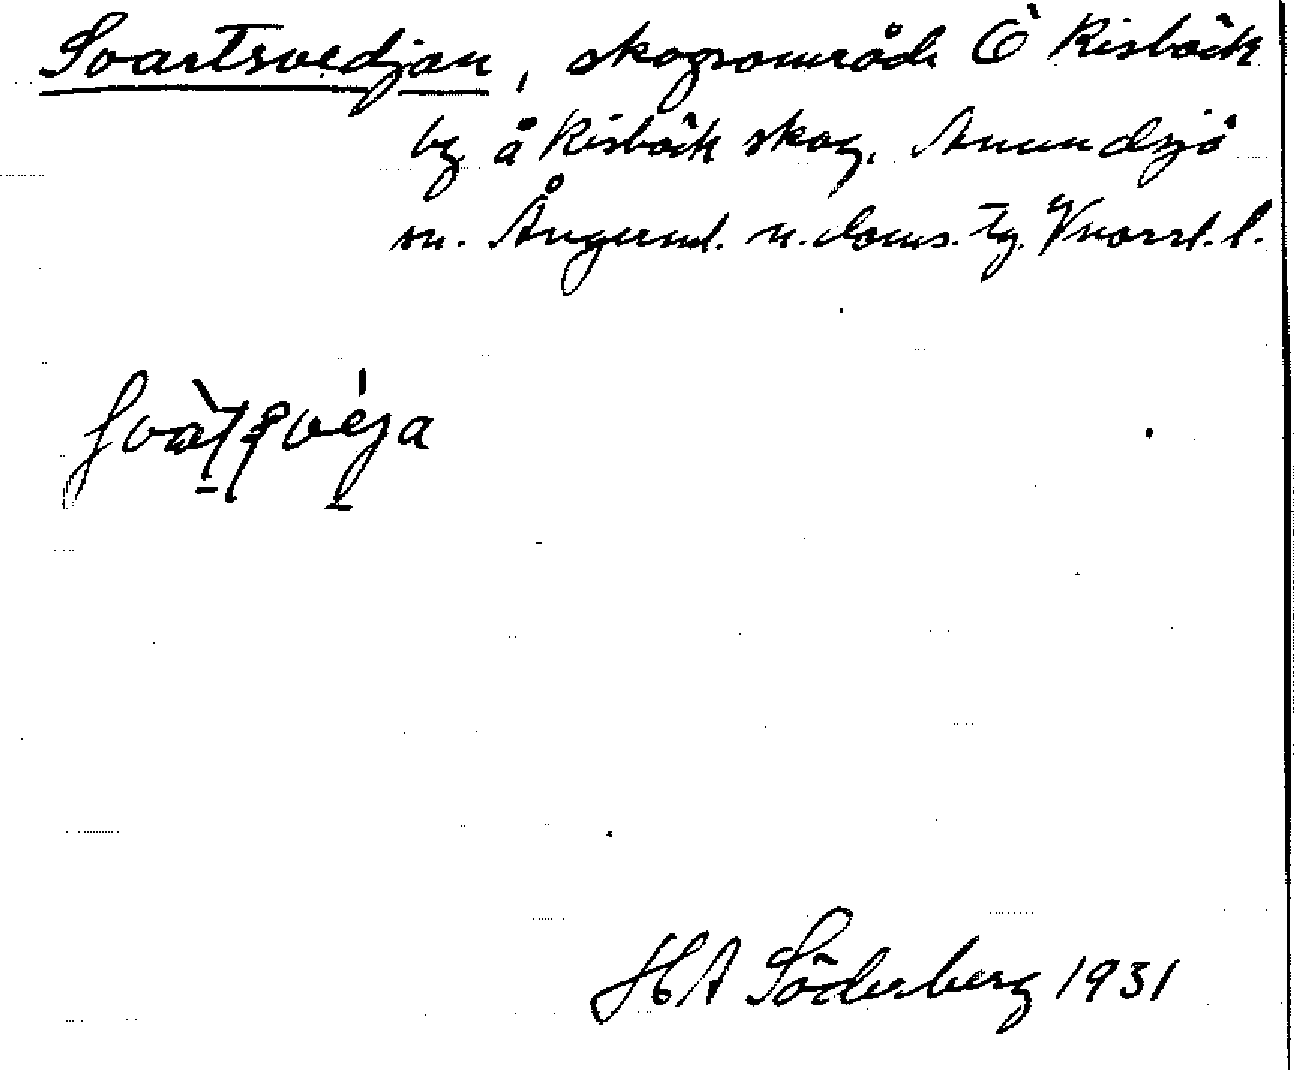 Svartsvedjan, skogsområde Ö Risbäck
by å Risbäck skog, Anundsjö
sn. Ångerml. n. doms. tg. Vnorrl. l.
HA Söderberg 1931